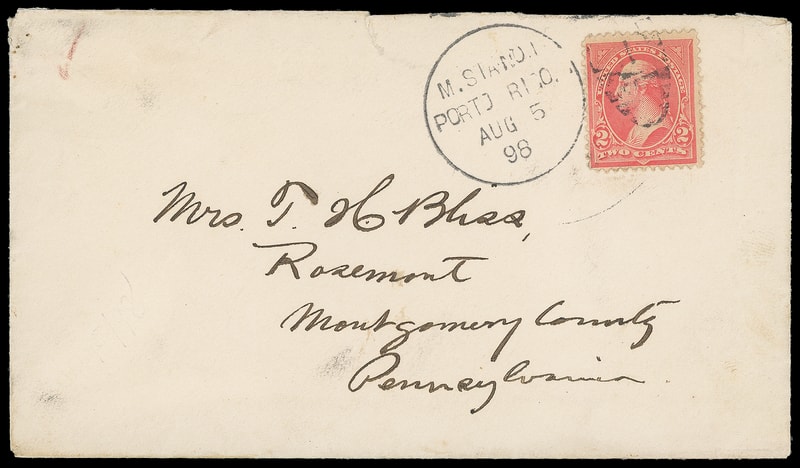 M. STAND. 1
PORTO RICO.
AUG 5
98
UNITED STATES POSTAGE
2 2
TWO CENTS
Mrs. T. H. Bliss,
Rosemont
Montgomery County
Pennsylvania.